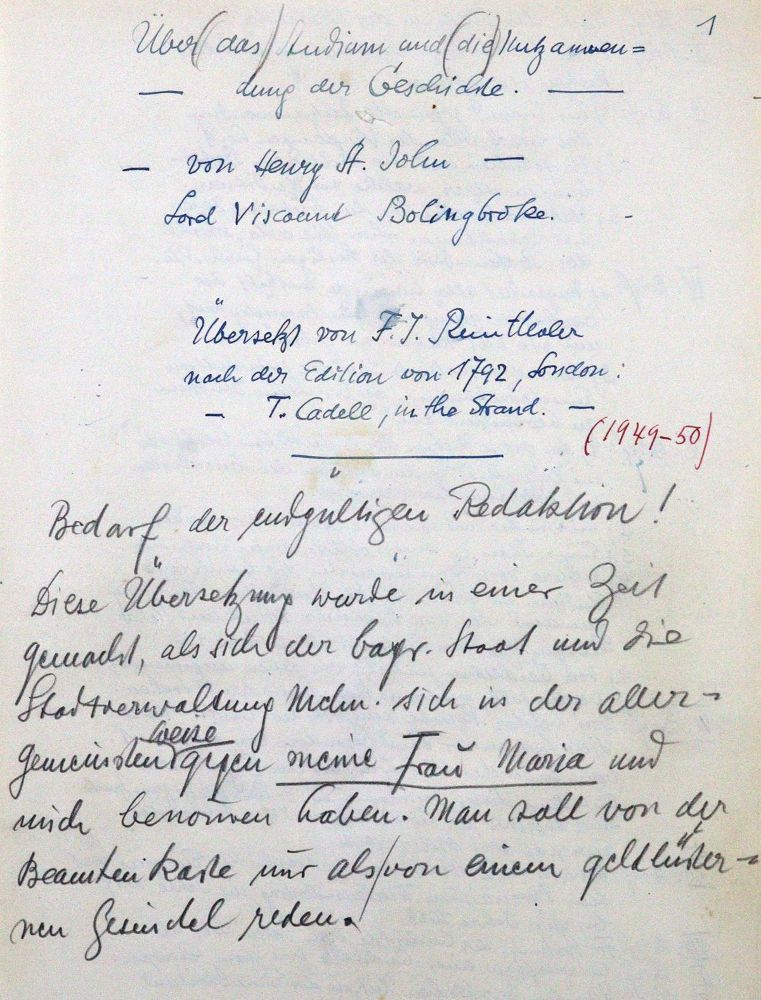 1
Über (das) Studium und (die) Nutzanwen=
— dung der Geschichte. —
— von Henry St. John —
Lord Viscount Bolingbroke.
Übersetzt von F. J. Reinthaler
nach der Edition von 1792, London:
— T. Cadell, in the Strand. —
(1949-50)
Bedarf der endgültigen Redaktion!
Diese Übersetzung wurde in einer Zeit
gemacht, als sich der bayr. Staat und die
Stadtverwaltung Mchn. sich in der aller=
weise
gemeinsten gegen meine Frau Maria und
mich benommen haben. Man soll von der
Beamtenkaste nur als/von einem geldlüster=
nen Gesindel reden.